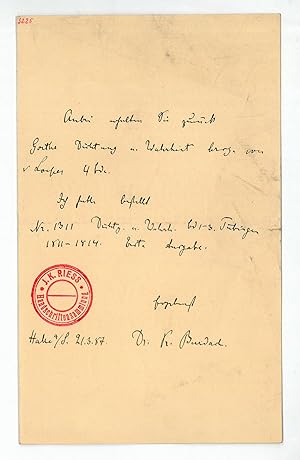 3225
Anbei erhalten Sie zurück
Goethe Dichtung u. Wahrheit hrsg. von
v Loeper 4 bde.
Ich hatte bestellt
Nr. 1311 Dichtg. u. Wahrh. bd 1-3. Tübingen
1811-1814. Erste Ausgabe.
J.K. RIESS
Handschriftensammlung
Ergebenst
Halle a/S. 21.3.87. Dr. K. Burdach